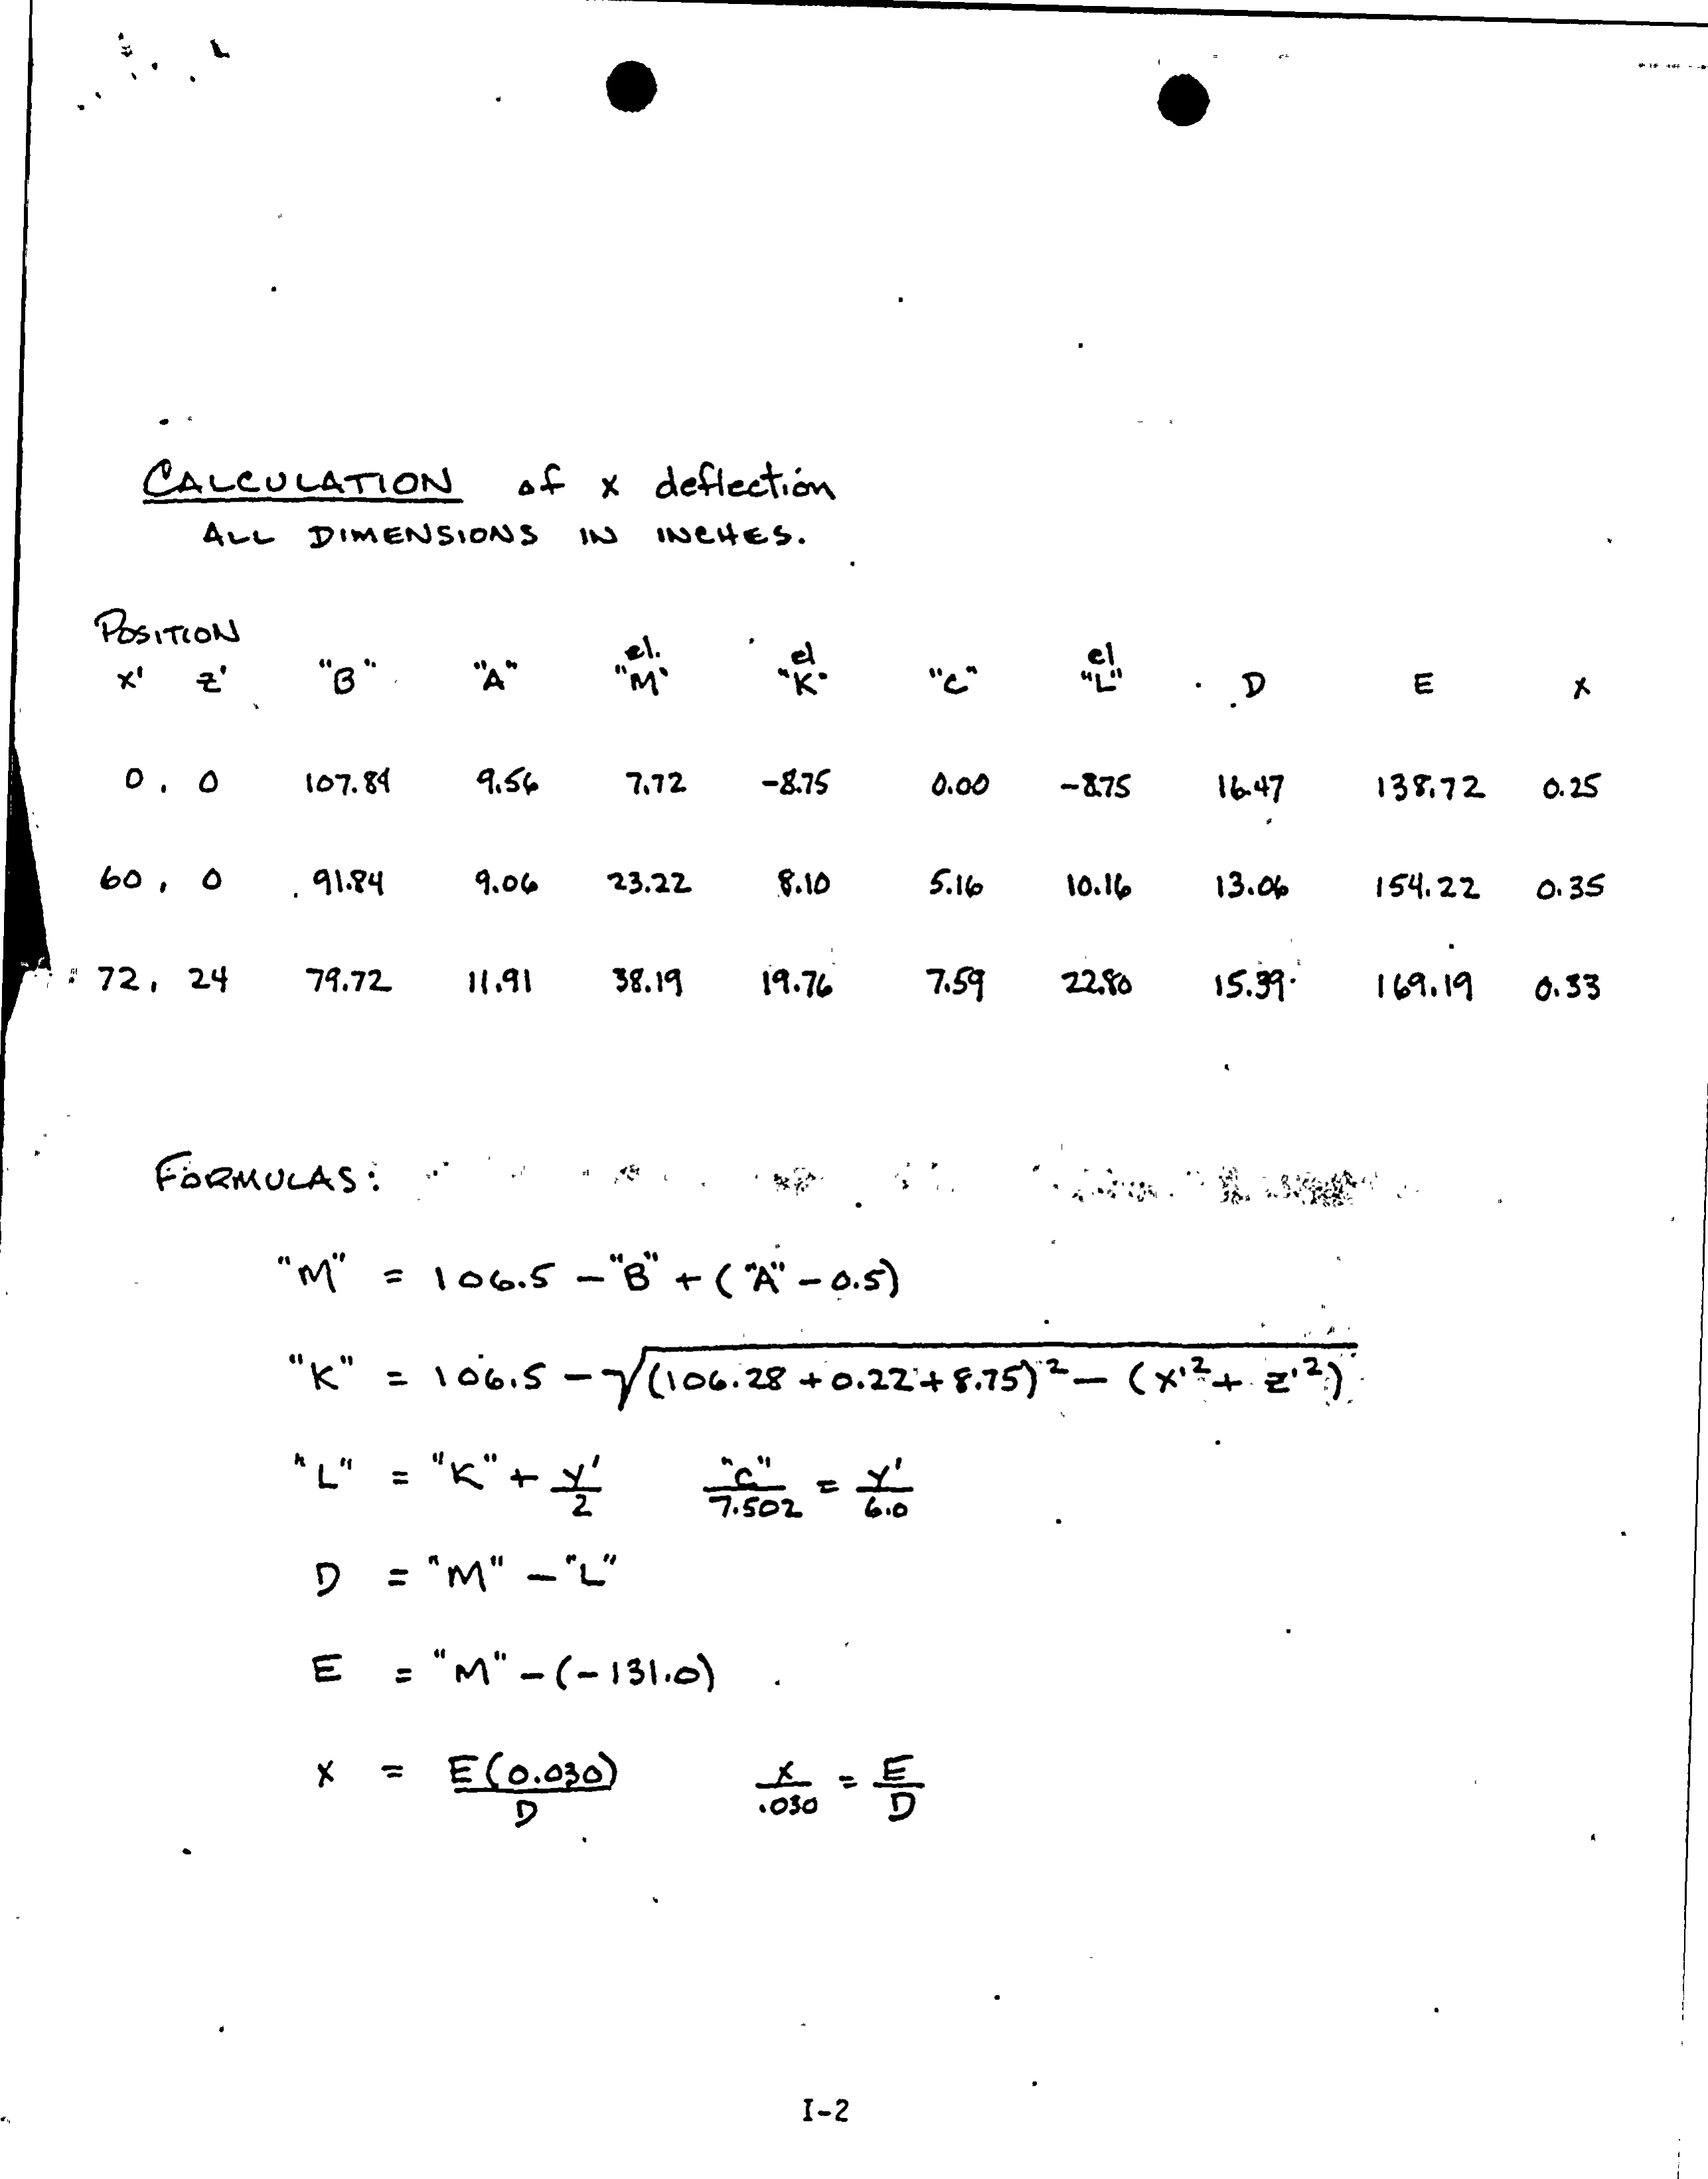 CALCULATION of x deflection
ALL DIMENSIONS IN INCHES.
POSITION
x' z' "B" "A" el. "M" el "K" "C" el "L" D E x
0, 0 107.84 9.56 7.72 -8.75 0.00 -8.75 16.47 138.72 0.25
60, 0 91.84 9.06 23.22 8.10 5.16 10.16 13.06 154.22 0.35
72, 24 79.72 11.91 38.19 19.76 7.59 22.80 15.39 169.19 0.33
FORMULAS:
"M" = 106.5 - "B" + ("A" - 0.5)
"K" = 106.5 - √(106.28 + 0.22 + 8.75)² - (x'² + z'²)
"L" = "K" + y'/2 "C"/7.502 = y'/6.0
D = "M" - "L"
E = "M" - (-131.0)
x = E(0.030)/D x/.030 = E/D
I-2